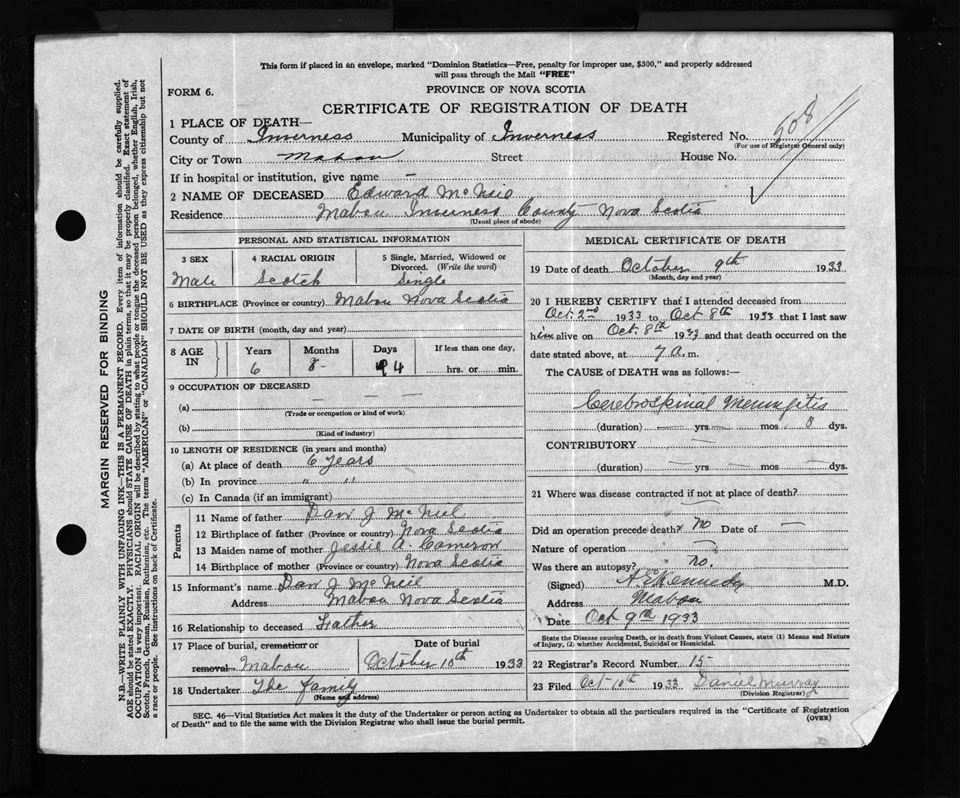 This form if placed in an envelope, marked "Dominion Statistics—Free, penalty for improper use, $300," and properly addressed
will pass through the Mail "FREE"
FORM 6.
PROVINCE OF NOVA SCOTIA
CERTIFICATE OF REGISTRATION OF DEATH
1 PLACE OF DEATH—
County of Inverness Municipality of Inverness Registered No. 508
(For use of Registrar General only)
City or Town Mabou Street House No.
If in hospital or institution, give name —
2 NAME OF DECEASED Edward McNeil
Residence Mabou Inverness County Nova Scotia
(Usual place of abode)
PERSONAL AND STATISTICAL INFORMATION
3 SEX 4 RACIAL ORIGIN 5 Single, Married, Widowed or
Divorced. (Write the word)
Male Scotch Single
6 BIRTHPLACE (Province or country) Mabou Nova Scotia
7 DATE OF BIRTH (month, day and year)
8 AGE IN Years Months Days If less than one day,
6 8 4 hrs. or min.
9 OCCUPATION OF DECEASED
(a) — — — —
(Trade or occupation or kind of work)
(b)
(Kind of industry)
10 LENGTH OF RESIDENCE (in years and months)
(a) At place of death 6 years
(b) In province " "
(c) In Canada (if an immigrant)
Parents
11 Name of father Dan J McNeil
12 Birthplace of father (Province or country) Nova Scotia
13 Maiden name of mother Jessie A. Cameron
14 Birthplace of mother (Province or country) Nova Scotia
15 Informant's name Dan J McNeil
Address Mabou Nova Scotia
16 Relationship to deceased Father
17 Place of burial, cremation or Date of burial
removal Mabou October 10th 1933
18 Undertaker The family
(Name and address)
MEDICAL CERTIFICATE OF DEATH
19 Date of death October 9th 1933
(Month, day and year)
20 I HEREBY CERTIFY that I attended deceased from
Oct. 2nd 1933 to Oct 8th 1933 that I last saw
him alive on Oct. 8th 1933 and that death occurred on the
date stated above, at 7 a.m.
The CAUSE of DEATH was as follows:—
Cerebrospinal Meningitis
(duration) — yrs. — mos 8 dys.
CONTRIBUTORY —
(duration) — yrs — mos. — dys.
21 Where was disease contracted if not at place of death?
Did an operation precede death? no Date of —
Nature of operation —
Was there an autopsy? no.
(Signed) Kennedy M.D.
Address Mabou
Date Oct 9th 1933
State the Disease causing Death, or in death from Violent Causes, state (1) Means and Nature
of Injury, (2) whether Accidental, Suicidal or Homicidal.
22 Registrar's Record Number 15
23 Filed Oct 10th 1933 Daniel Murray
(Division Registrar)
SEC. 46—Vital Statistics Act makes it the duty of the Undertaker or person acting as Undertaker to obtain all the particulars required in the "Certificate of Registration
of Death" and to file the same with the Division Registrar who shall issue the burial permit.
(OVER)
MARGIN RESERVED FOR BINDING
N.B.—WRITE PLAINLY WITH UNFADING INK—THIS IS A PERMANENT RECORD. Every item of information should be carefully supplied.
AGE should be stated EXACTLY. PHYSICIANS should STATE CAUSE OF DEATH in plain terms, so that it may be properly classified. Exact statement of
OCCUPATION is very important. RACIAL ORIGIN will be described by stating to what people or tongue the deceased person belonged, whether English, Irish,
Scotch, French, German, Russian, Ruthenian, etc. The terms "AMERICAN" or "CANADIAN" SHOULD NOT BE USED as they express citizenship but not
a race or people. See instructions on back of Certificate.